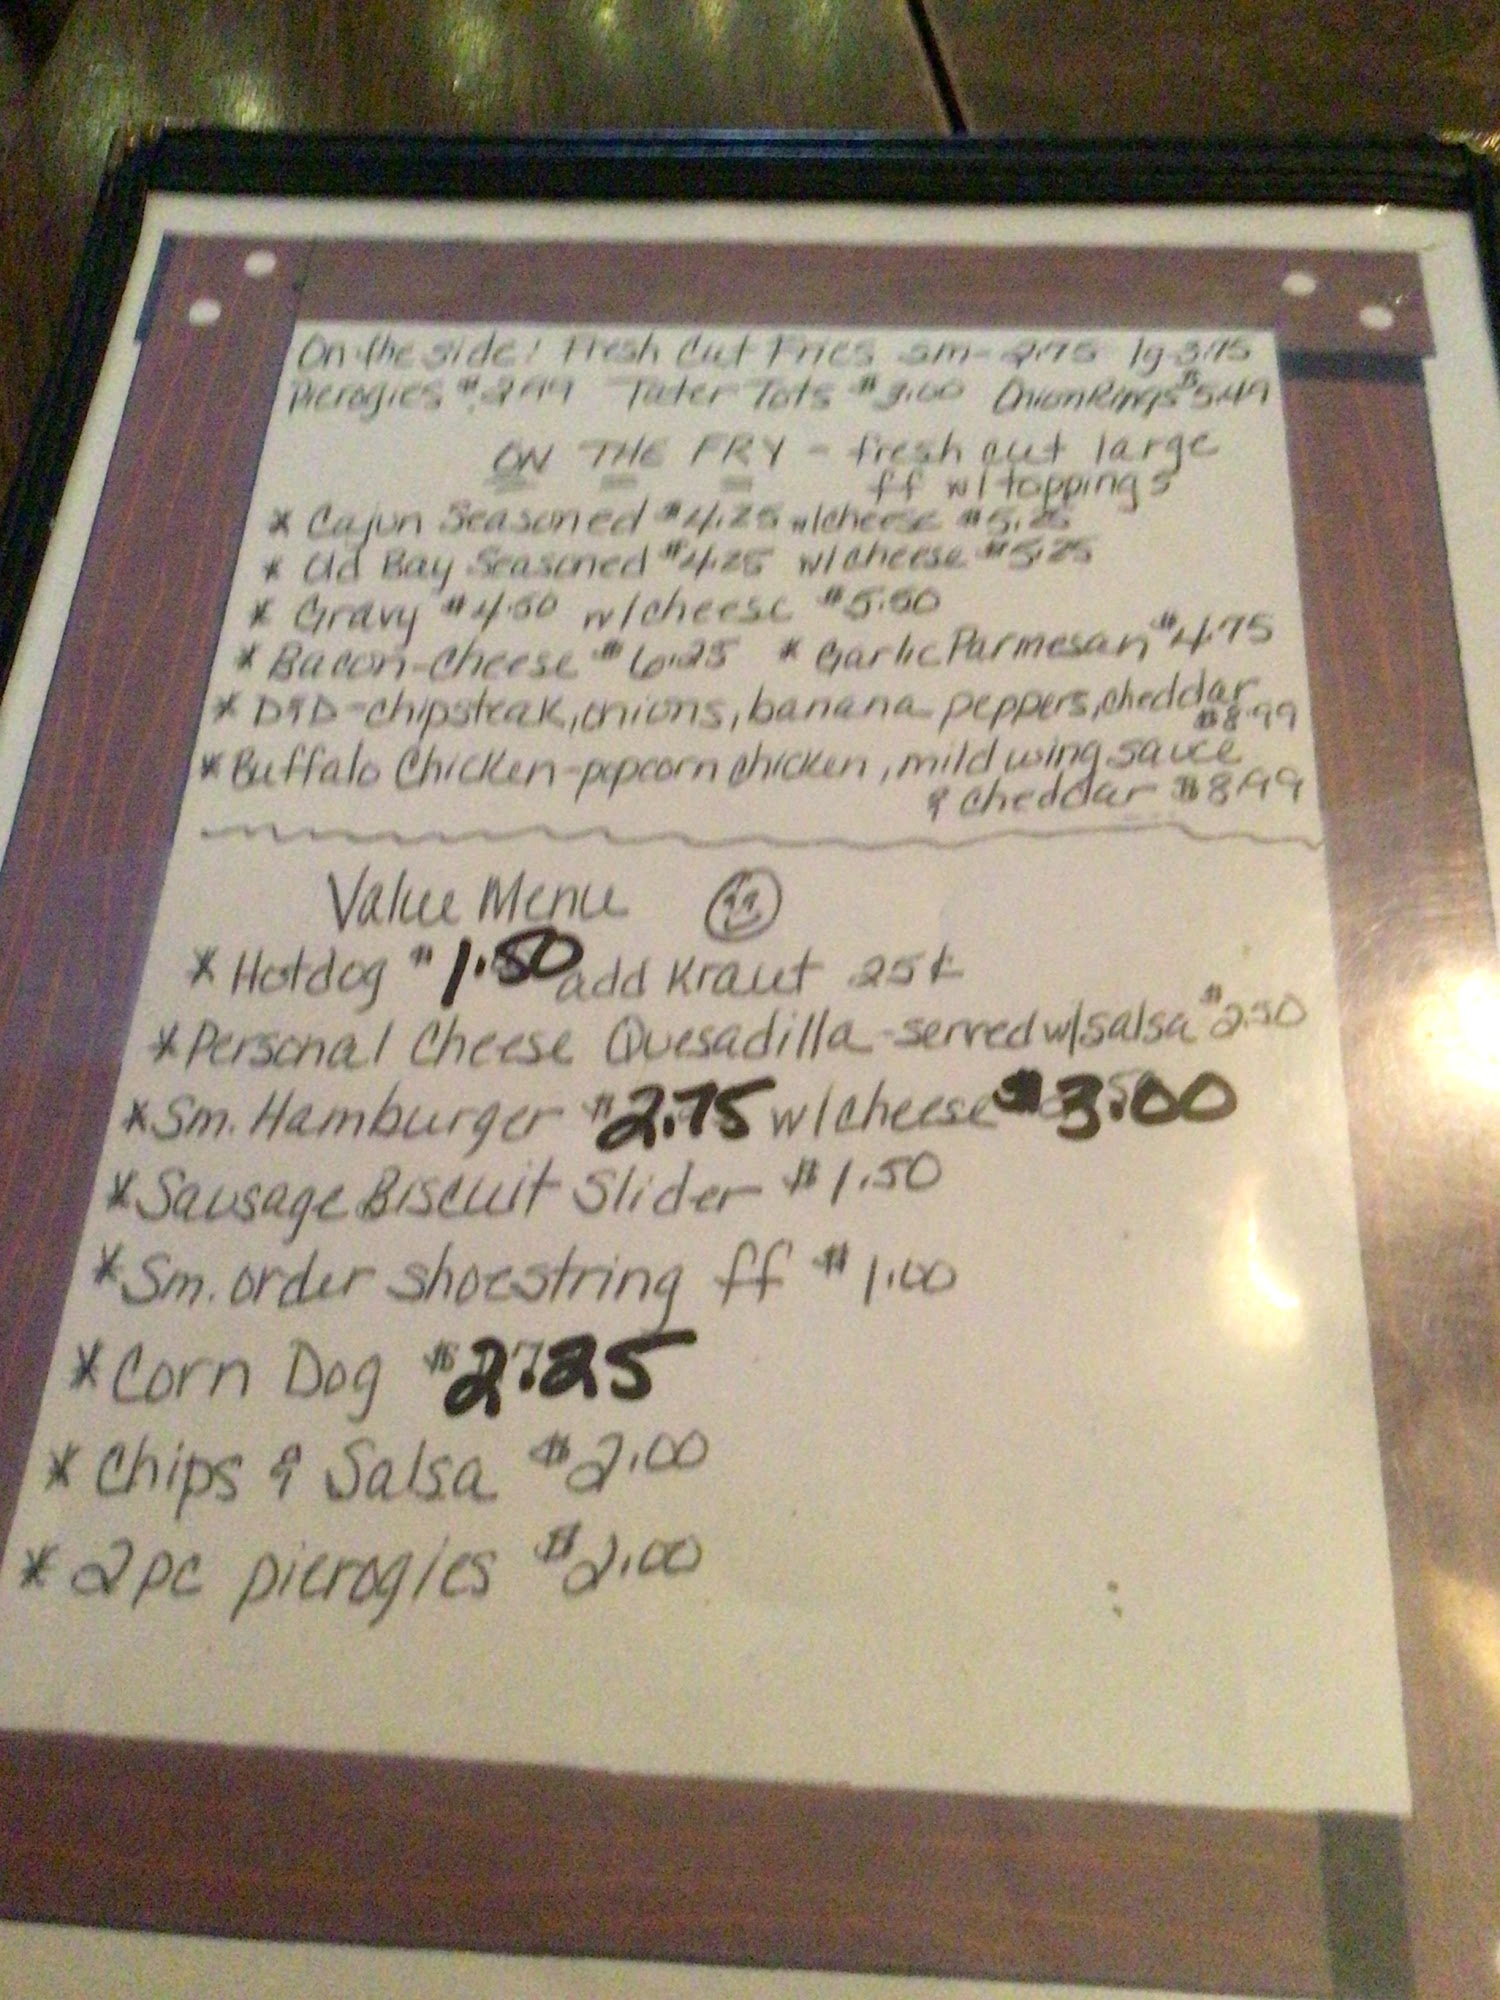 On the side! Fresh Cut Fries sm-2.75 lg 3.75
Pierogies $2.99 Tater Tots $3.00 Onion Rings $5.49
ON THE FRY - fresh cut large
ff w/toppings
* Cajun Seasoned $4.25 w/cheese $5.25
* Old Bay Seasoned $4.25 w/cheese $5.25
* Gravy $4.50 w/cheese $5.50
* Bacon-Cheese $6.25 * Garlic Parmesan $4.75
* D&D-chipsteak, onions, banana peppers, cheddar
$8.99
* Buffalo Chicken-popcorn chicken, mild wing sauce
& cheddar $8.99
Value Menu
* Hotdog $1.50 add Kraut 25¢
* Personal Cheese Quesadilla-served w/salsa $2.50
* Sm. Hamburger $2.75 w/cheese $3.00
* Sausage Biscuit Slider $1.50
* Sm. order shoestring ff $1.00
* Corn Dog $2.25
* Chips & Salsa $2.00
* 2pc pierogies $2.00